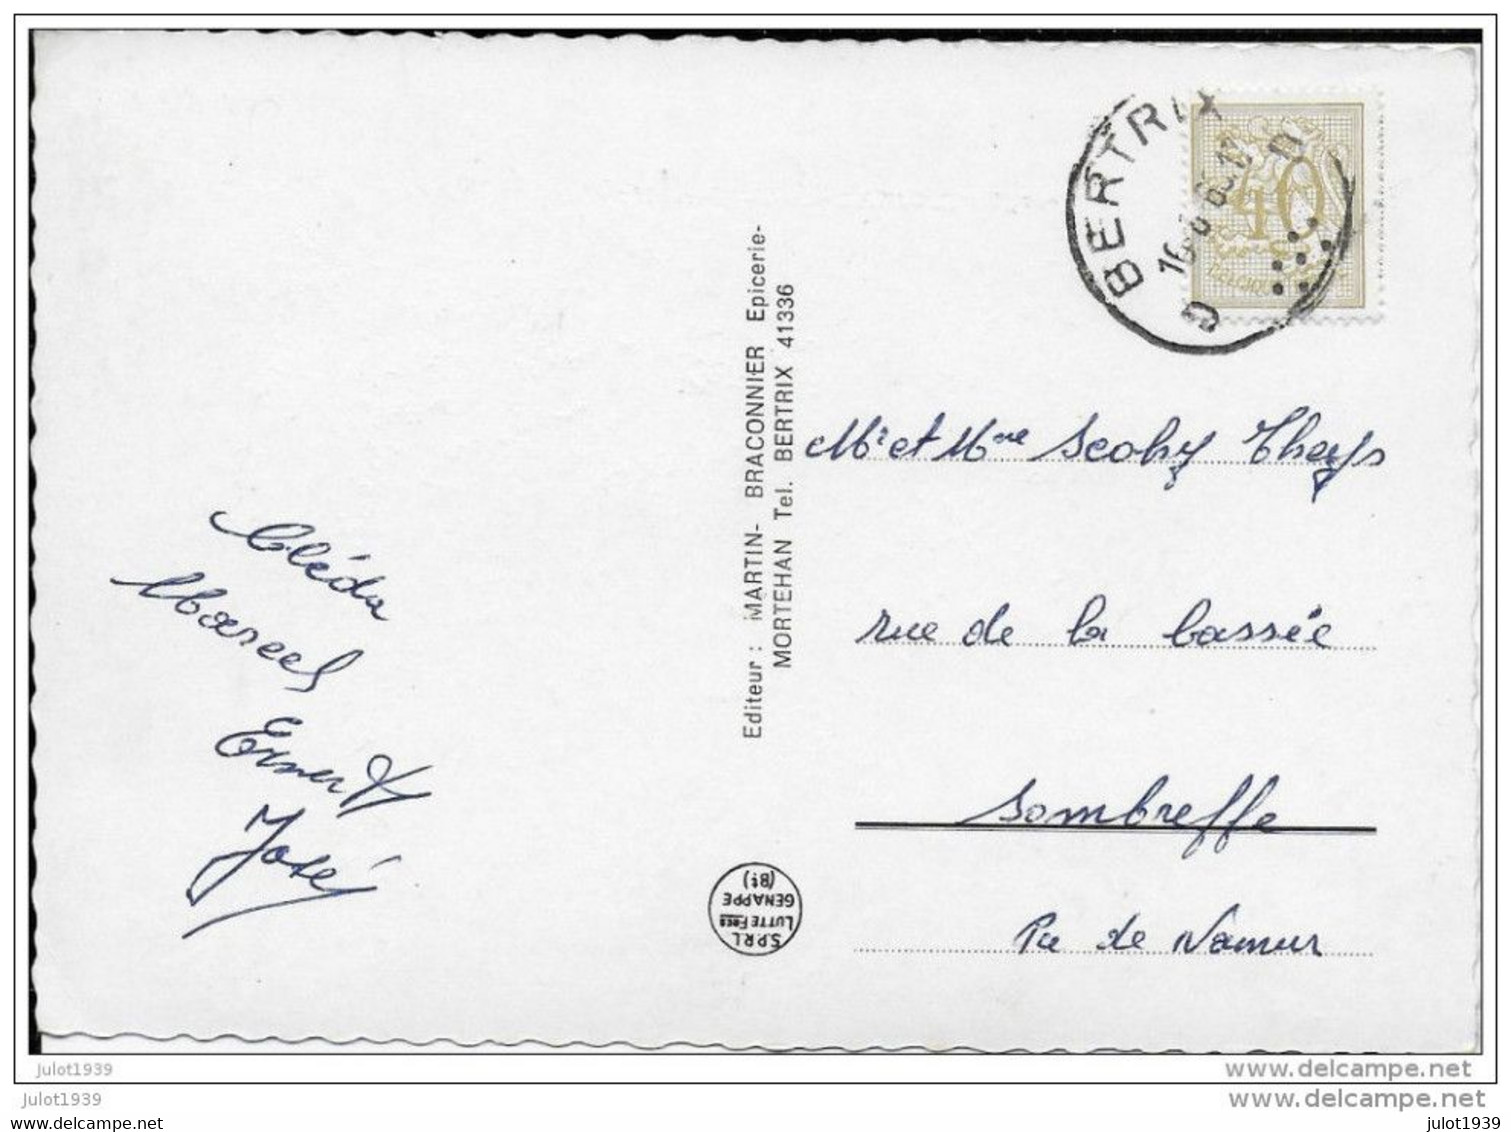 BERTRIX
G
40
BELGIQUE
Editeur : MARTIN- BRACONNIER Epicerie-
MORTEHAN Tel. BERTRIX 41336
Mr et Mme Scohy Theys
rue de la bassée
Sombreffe
Pce de Namur
Cléda
Marcel
Ernest
José
S.P.R.L
LUTTE Frcs
GENAPPE
(Bt)
julot1939
www.delcampe.net
julot1939
www.delcampe.net
www.delcampe.net
julot1939